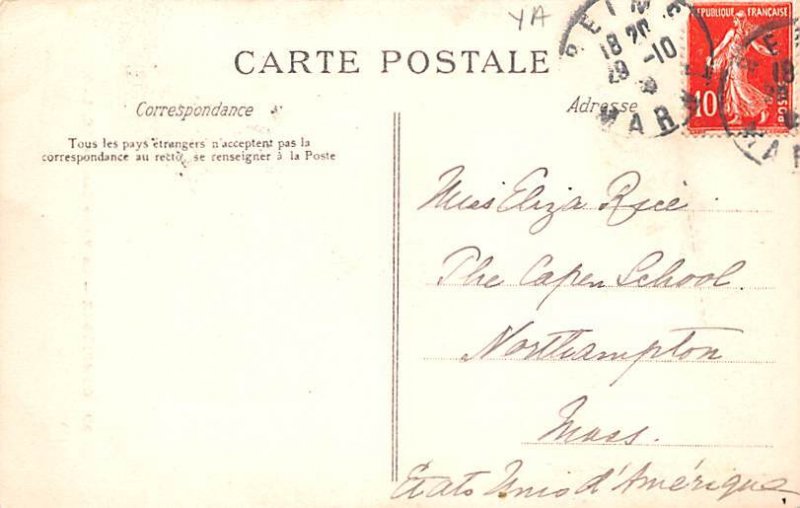 YA
REPUBLIQUE FRANÇAISE
10
POSTES
18 20
29 -10
MARNE
CARTE POSTALE
Correspondance
Adresse
Tous les pays étrangers n'acceptent pas la
correspondance au recto, se renseigner à la Poste
Miss Eliza Rice
The Capen School.
Northampton
Mass.
États Unis d'Amérique